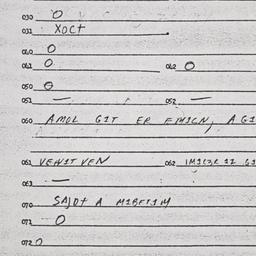 030 O
031 XOCT
040 O
041 O 042 O
050 O
051 — 052 —
060 AMOL GIT ER FIMICN, A GI
061 VEHIT VEN 062
063 —
070 SAJOT A MIBFIIM
071 O
072 O